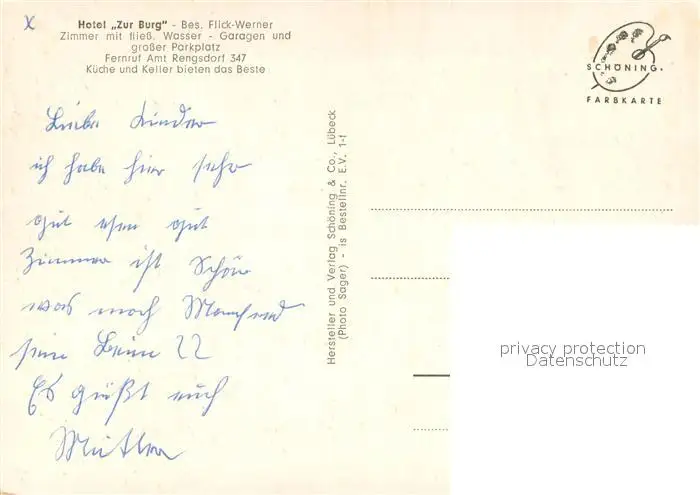 Hotel „Zur Burg" - Bes. Flick-Werner
Zimmer mit fließ. Wasser - Garagen und
großer Parkplatz
Fernruf Amt Rengsdorf 347
Küche und Keller bieten das Beste
Liebe Kinder
ich habe hier sehr
gut esen gut
Zimmer ist Schön
was mach Manfred
sein Bein ??
Es grüßt euch
Mutter
Hersteller und Verlag Schöning & Co., Lübeck
(Photo Sager) - is Bestellnr. E.V. 1-f
SCHÖNING.
FARBKARTE
privacy protection
Datenschutz